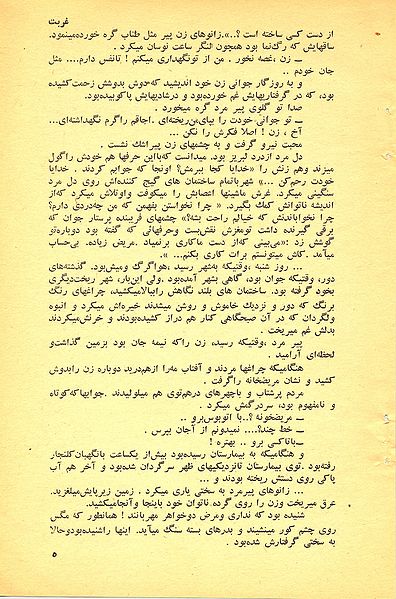 غربت
از دست کسی ساخته است ؟..».زانوهای زن پیر مثل طناب گره خورده‌مینمود.
ساقهایش که رگ‌نما بود همچون لنگر ساعت نوسان میکرد .
ــ زن ،غصه نخور . من از تونگهداری میکنم ! تانفس دارم.... مثل
جان خودم ..
و به روزگار جوانی زن خود اندیشید که‌دوش بدوشش زحمت‌کشیده
بود، که در گرفتاریهایش غم خورده‌بود و درشادیهایش پاکوبیده‌بود.
صدا تو گلوی پیر مرد گره میخورد .
ــ تو جوانی خودت را بپای‌من‌ریخته‌ای .اجاقم راگرم نگهداشته‌ای...
آخ ، زن ! اصلا فکرش را نکن ...
محبت نیرو گرفت و به چشمهای زن پیراشك نشست .
دل مرد ازدرد لبریز بود. میدانست که‌بااین حرفها هم خودش راگول
میزند وهم زنش را «خدایا کجا ببرمش؟ اونجا که آوا‌جم کردند . خدایا
خودت رحم‌کن ...» شهرباتمام ساختمان های گیج کننده‌اش روی دل مرد
سنگینی میکرد. غرش ماشینها اعصابش را میکوفت واوتلاش میکردکه‌از
اندیشه ناتوانش کمك بگیرد. « چرا نخواستن بفهمن که من چه‌دردی دارم؟
چرا نخوابانندش که خیالم راحت بشه؟» چشمهای فریبنده پرستار جوان که
برقی گیرنده داشت تومغزش نقش‌بست وحرفهائی که گفته بود دوباره‌تو
گوشش زد :«می‌بینی که‌از دست ماکاری برنمیاد .مریض زیاده. بی‌حساب
میآمد .کاش میتونستم برات کاری بکنم... ».
... روز شنبه ،وقتیکه به‌شهر رسید ،هواگرگ ومیش‌بود. گذشته‌های
دور، وقتیکه جوان بود، گاهی بشهر آمده‌بود .ولی این‌بار، شهر ریخت‌دیگری
بخود گرفته بود. ساختمان های بلند نگاهش رابالامیکشید، چراغهای رنگ
برنگ که دور و نزدیك خاموش و روشن میشدند خیره‌اش میکرد و انبوه
ولگردان که در آن صبحگاهی کنار هم دراز کشیده‌بودند و خرنش‌میکردند
بدلش غم میریخت .
پیر مرد ،وقتیکه رسید، زن راکه نیمه جان بود بزمین گذاشت‌و
لحظه‌ای آرامید .
هنگامیکه چراغها مردند و آفتاب مه‌را ازهم‌درید دوباره زن رابدوش
کشید و نشان مریضخانه راگرفت .
مردم پرشتاب و باچهرهای درهم‌توی هم میلولیدند .جوابهاکه‌کوتاه
و نامفهوم بود، سردرگمش میکرد .
ــ مریضخونه ؟..با اتوبوس‌برو ..
ــ خط چند؟.... نمیدونم از آجان بپرس .
ــ باتاکسی برو .. بهتره !
و هنگامیکه به بیمارستان رسیده‌بود بیش‌از یکساعت بانگهبان‌کلنجار
رفته‌بود .توی بیمارستان تانزدیکیهای ظهر سرگردان شده‌بود و آخر هم آب
پاکی روی دستش ریخته بودند و ...
... زانوهای پیرمرد به سختی یاری میکرد . زمین زیرپایش‌میلغزید.
عرق میریخت وزن را روی گرده ناتوان خود باینجا وآنجامیکشید.
شنیده بود که نداری ومرض دوخواهر مهربانند ! همانطور که مگس
روی چشم کور مینشیند و بدرهای بسته سنگ میآید. اینها راشنیده‌بودوحالا
به سختی گرفتارش شده‌بود .
۵